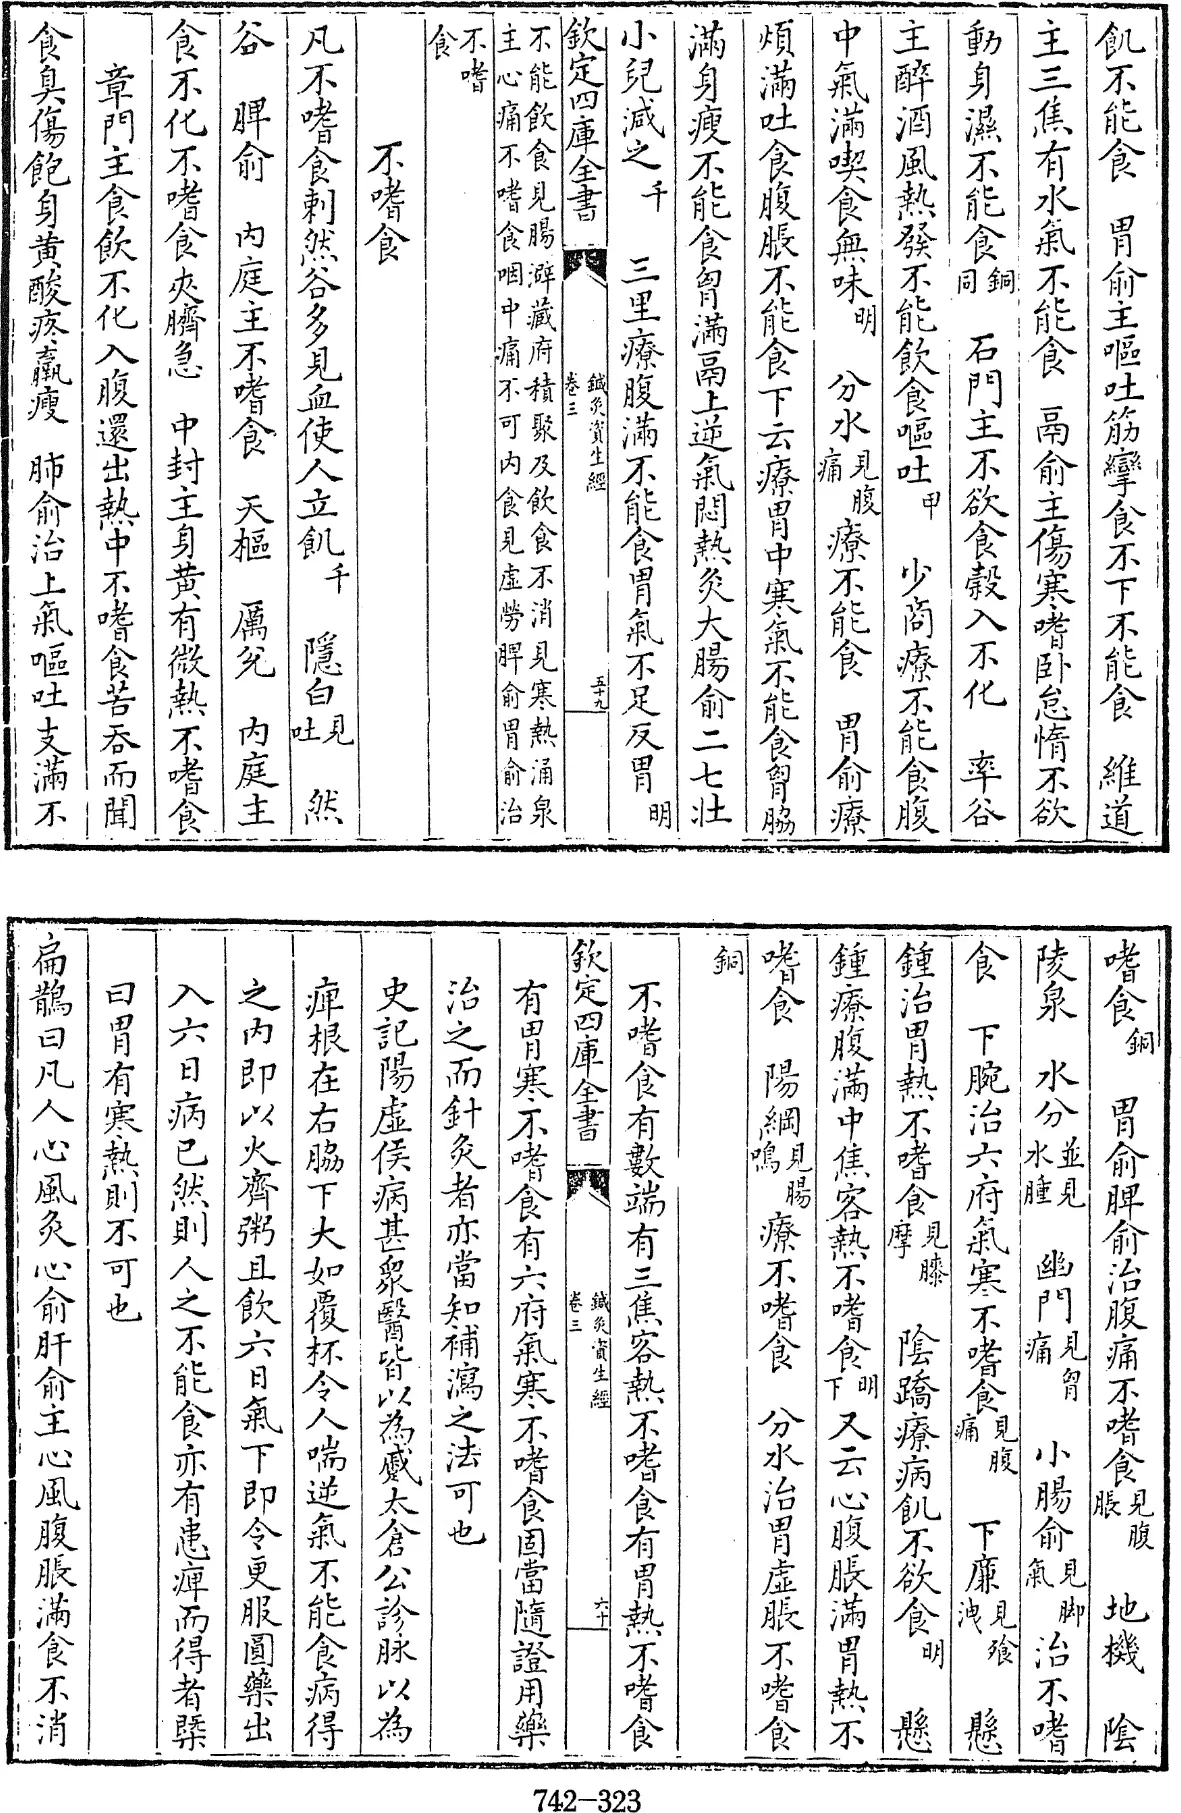 飢不能食　胃俞主嘔吐筋攣食不下不能食　維道
主三焦有水氣不能食　鬲俞主傷寒嗜卧怠惰不欲
動身濕不能食銅同　石門主不欲食穀入不化　率谷
主醉酒風熱發不能飲食嘔吐甲　少商療不能食腹
中氣滿喫食無味明　分水見腹痛療不能食　胃俞療
煩滿吐食腹脹不能食下云療胃中寒氣不能食胷脇
滿身瘦不能食胷滿鬲上逆氣悶熱灸大腸俞二七壮
小兒減之千　三里療腹滿不能食胃氣不足反胃明
欽定四庫全書　鍼灸資生經卷三　五十九
不能飲食見腸澼藏府積聚及飲食不消見寒熱涌泉
主心痛不嗜食咽中痛不可内食見虛勞脾俞胃俞治
不嗜
食
不嗜食
凡不嗜食刺然谷多見血使人立飢千　隱白見吐　然
谷　脾俞　内庭主不嗜食　天樞　厲兌　内庭主
食不化不嗜食夾臍急　中封主身黃有微熱不嗜食
章門主食飲不化入腹還出熱中不嗜食苦吞而聞
食臭傷飽身黃酸疼羸瘦　肺俞治上氣嘔吐支滿不
嗜食銅　胃俞脾俞治腹痛不嗜食見腹脹　地機　陰
陵泉　水分並見水腫　幽門見胷痛　小腸俞見脚氣治不嗜
食　下腕治六府氣寒不嗜食見腹痛　下廉見飱洩　懸
鍾治胃熱不嗜食見膝摩　陰蹻療病飢不欲食明　懸
鍾療腹滿中焦客熱不嗜食明下又云心腹脹滿胃熱不
嗜食　陽綱見腸鳴療不嗜食　分水治胃虛脹不嗜食
銅
不嗜食有數端有三焦客熱不嗜食有胃熱不嗜食
欽定四庫全書　鍼灸資生經卷三　六十
有胃寒不嗜食有六府氣寒不嗜食固當隨證用藥
治之而針灸者亦當知補瀉之法可也
史記陽虛侯病甚衆醫皆以為蹷太倉公診脉以為
痺根在右脇下大如覆杯令人喘逆氣不能食病得
之内即以火齊粥且飲六日氣下即令更服圓藥出
入六日病已然則人之不能食亦有患痺而得者槩
曰胃有寒熱則不可也
扁鵲曰凡人心風灸心俞肝俞主心風腹脹滿食不消
742-323